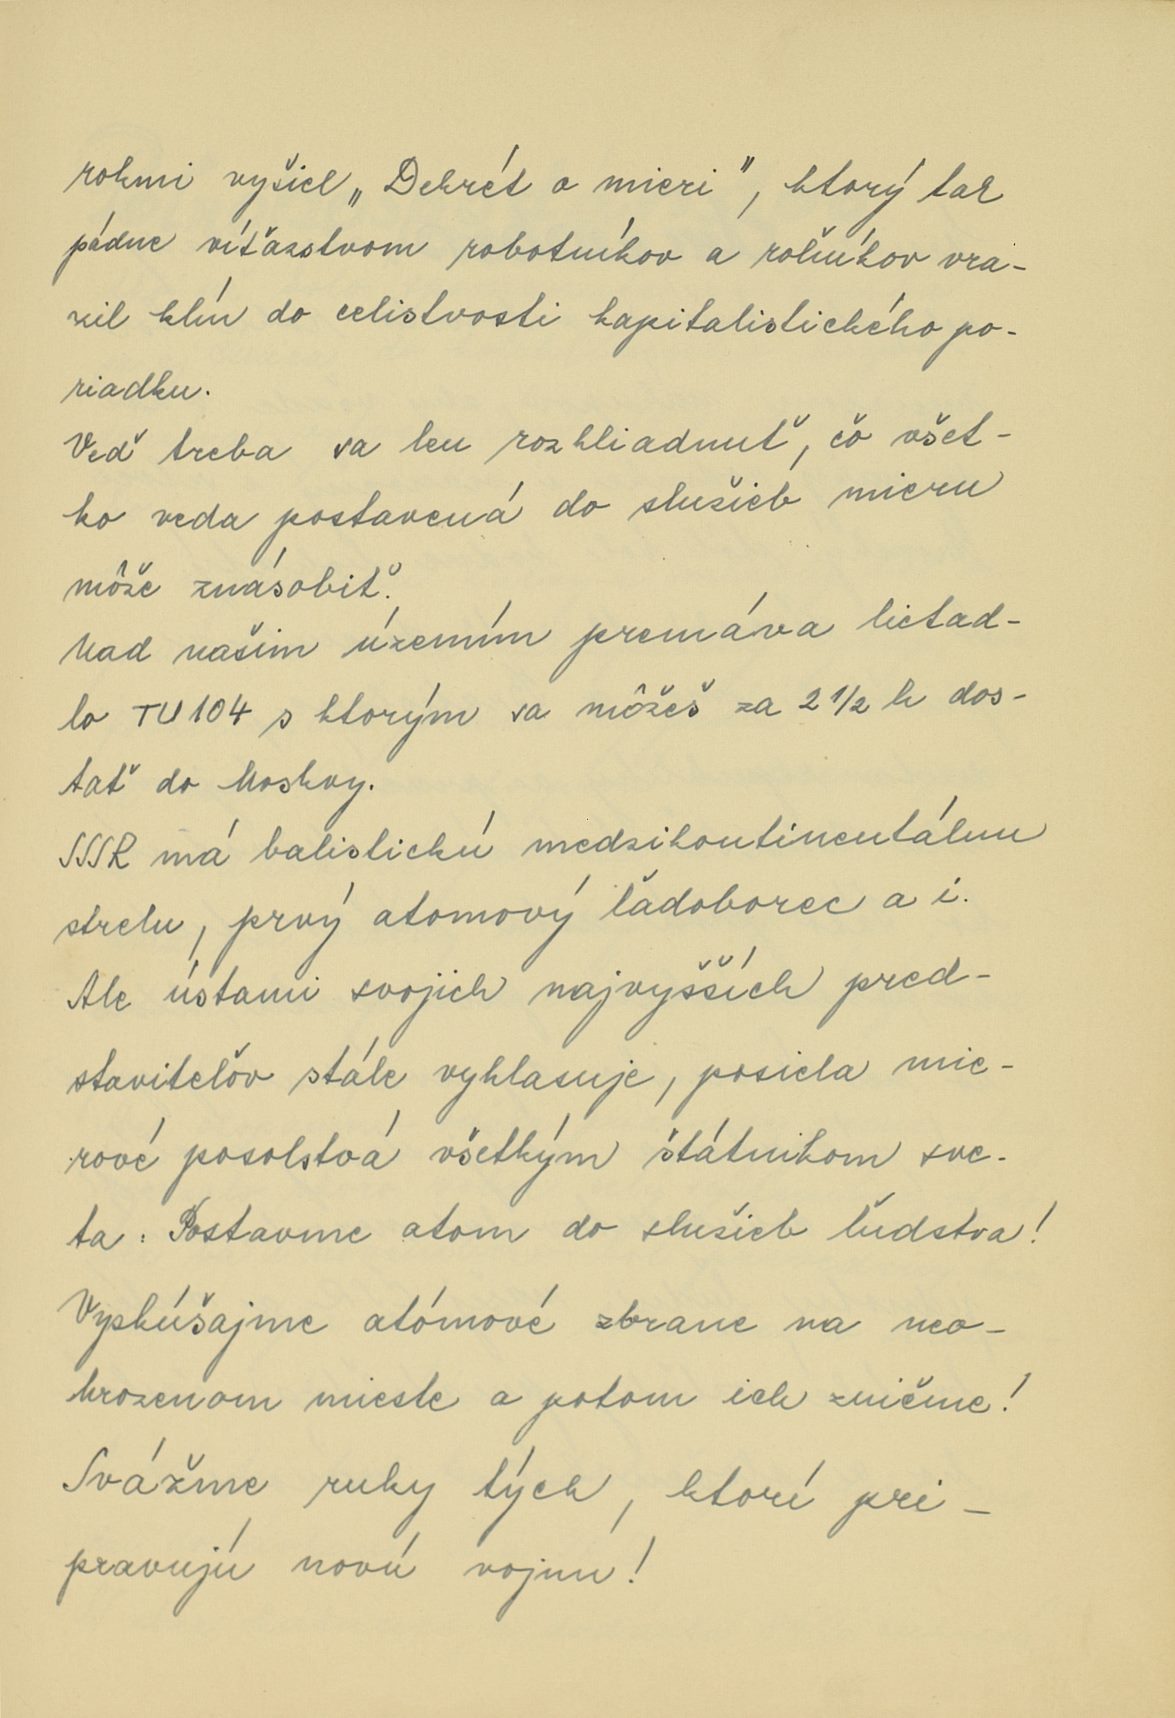 rokmi vyšiel „Dekrét o mieri", ktorý tak
pádne víťazstvom robotníkov a roľníkov vra-
zil klín do celistvosti kapitalistického po-
riadku.
Veď treba sa len rozhliadnuť, čo všet-
ko veda postavená do služieb mieru
môže znásobiť.
Nad našim územím premáva lietad-
lo TU 104 s ktorým sa môžeš za 2 1/2 h dos-
tať do Moskvy.
SSSR má balistickú medzikontinentálnu
strelu, prvý atomový ľadoborec a i.
Ale ústami svojich najvyšších pred-
staviteľov stále vyhlasuje, posiela mie-
rové posolstvá všetkým štátnikom sve-
ta: Postavme atom do služieb ľudstva!
Vyskúšajme atómové zbrane na neo-
hrozenom mieste a potom ich zničme!
Sväžme ruky tých, ktorí pri-
pravujú novú vojnu!